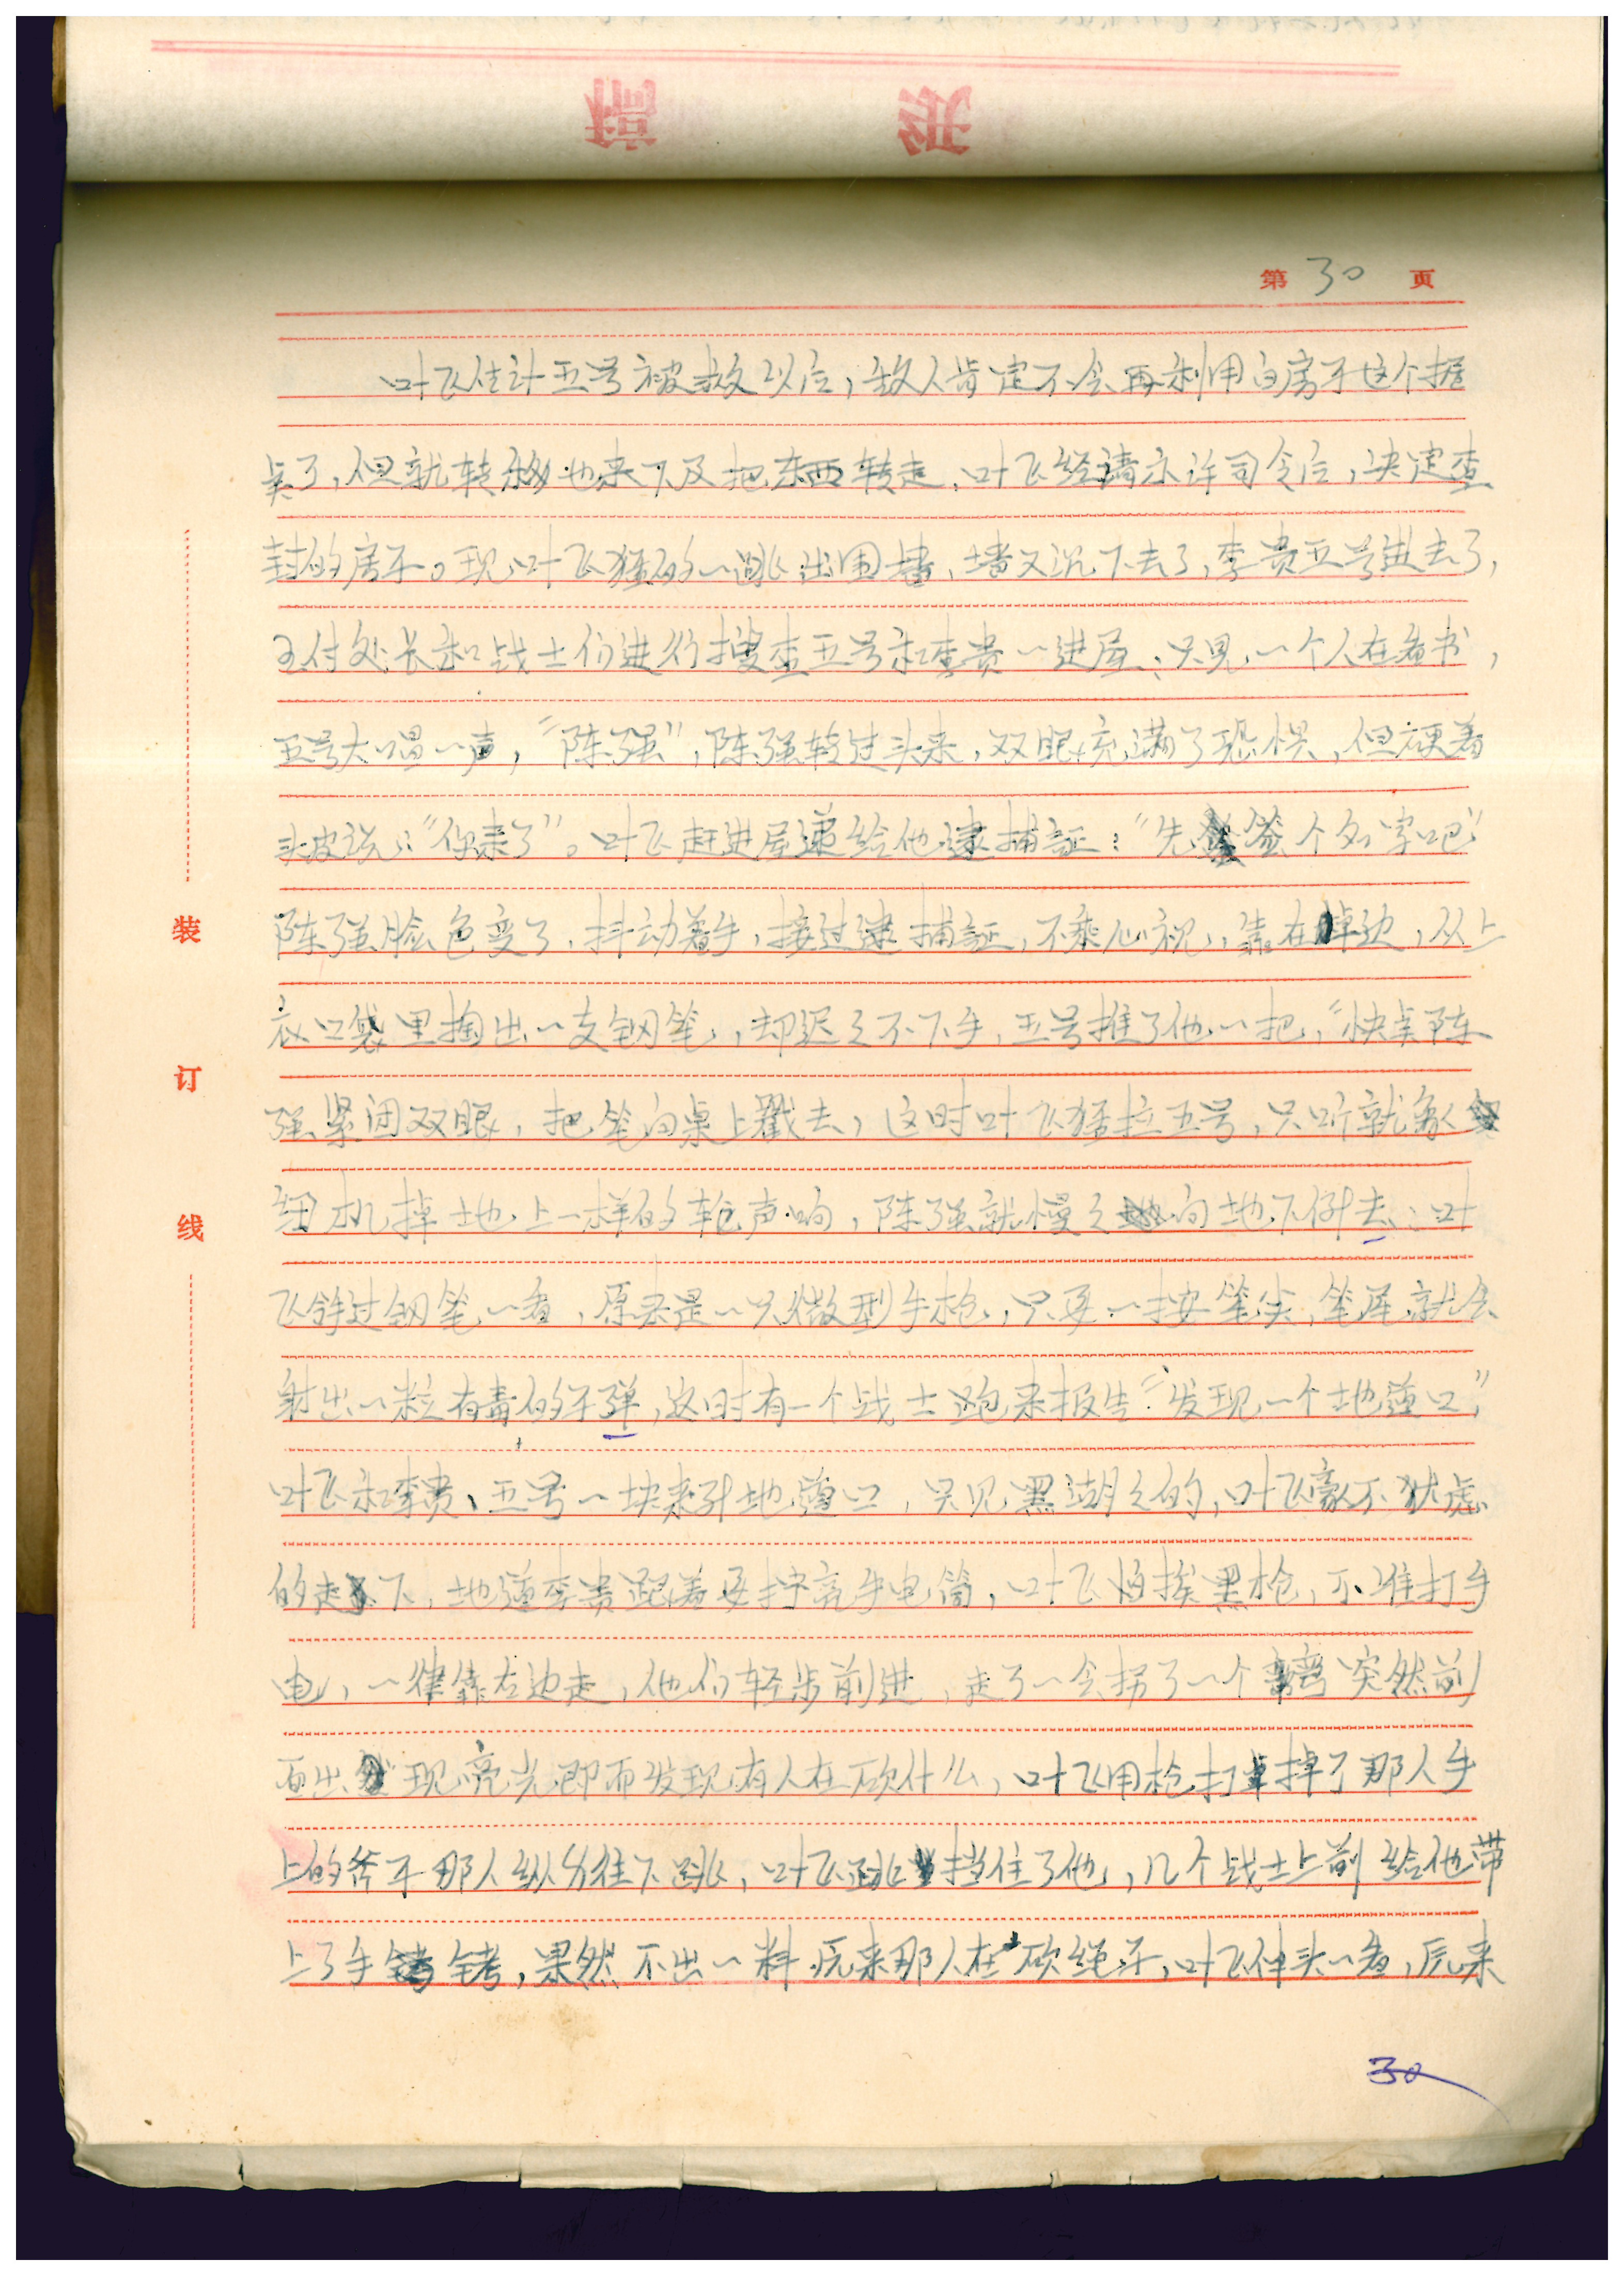 第30页
叶飞估计五号被救以后，敌人肯定不会再利用白房子这个据
点了，但就转移也来不及把东西转走，叶飞经请示许司令后，决定查
封的房子。现叶飞猛的一跳出围墙，墙又沉下去了，李贵五号进去了，
王付处长和战士们进行搜查五号和李贵一进屋，只见一个人在看书，
五号大喝一声，“陈强”，陈强转过头来，双眼充满了恐惧，但硬着
头皮说：“你来了”。叶飞赶进屋递给他逮捕证：“先签个名字吧”
陈强脸色变了，抖动着手，接过逮捕证，不乘心视，靠在掉边，从上
衣口袋里掏出一支钢笔，却迟之不下手，五号推了他一把，“快点陈
强紧闭双眼，把笔向桌上戳去，这时叶飞猛拉五号，只听就象
细机掉地上一样的轮声响，陈强就慢之向地下倒去，叶
飞锌过钢笔一看，原来是一只微型手枪，只要一按笔尖，笔尾就会
射出一粒有毒的子弹，这时有一个战士跑来报告“发现一个地道口”，
叶飞和李贵、五号一块来到地道口，只见黑湖之的，叶飞豪不犹虑
的走下，地道李贵跟着要打亮手电筒，叶飞怕挨黑枪，不准打手
电，一律靠左边走，他们轻步前进，走了一会拐了一个弯突然前
面出现亮光即而发现有人在砍什么，叶飞用枪打掉了那人手
上的斧子那人纵身往下跳，叶飞跳挡住了他，几个战士上前给他带
上了手铐，果然不出一料原来那人在砍绳子，叶飞伸头一看，原来
30
装
订
线